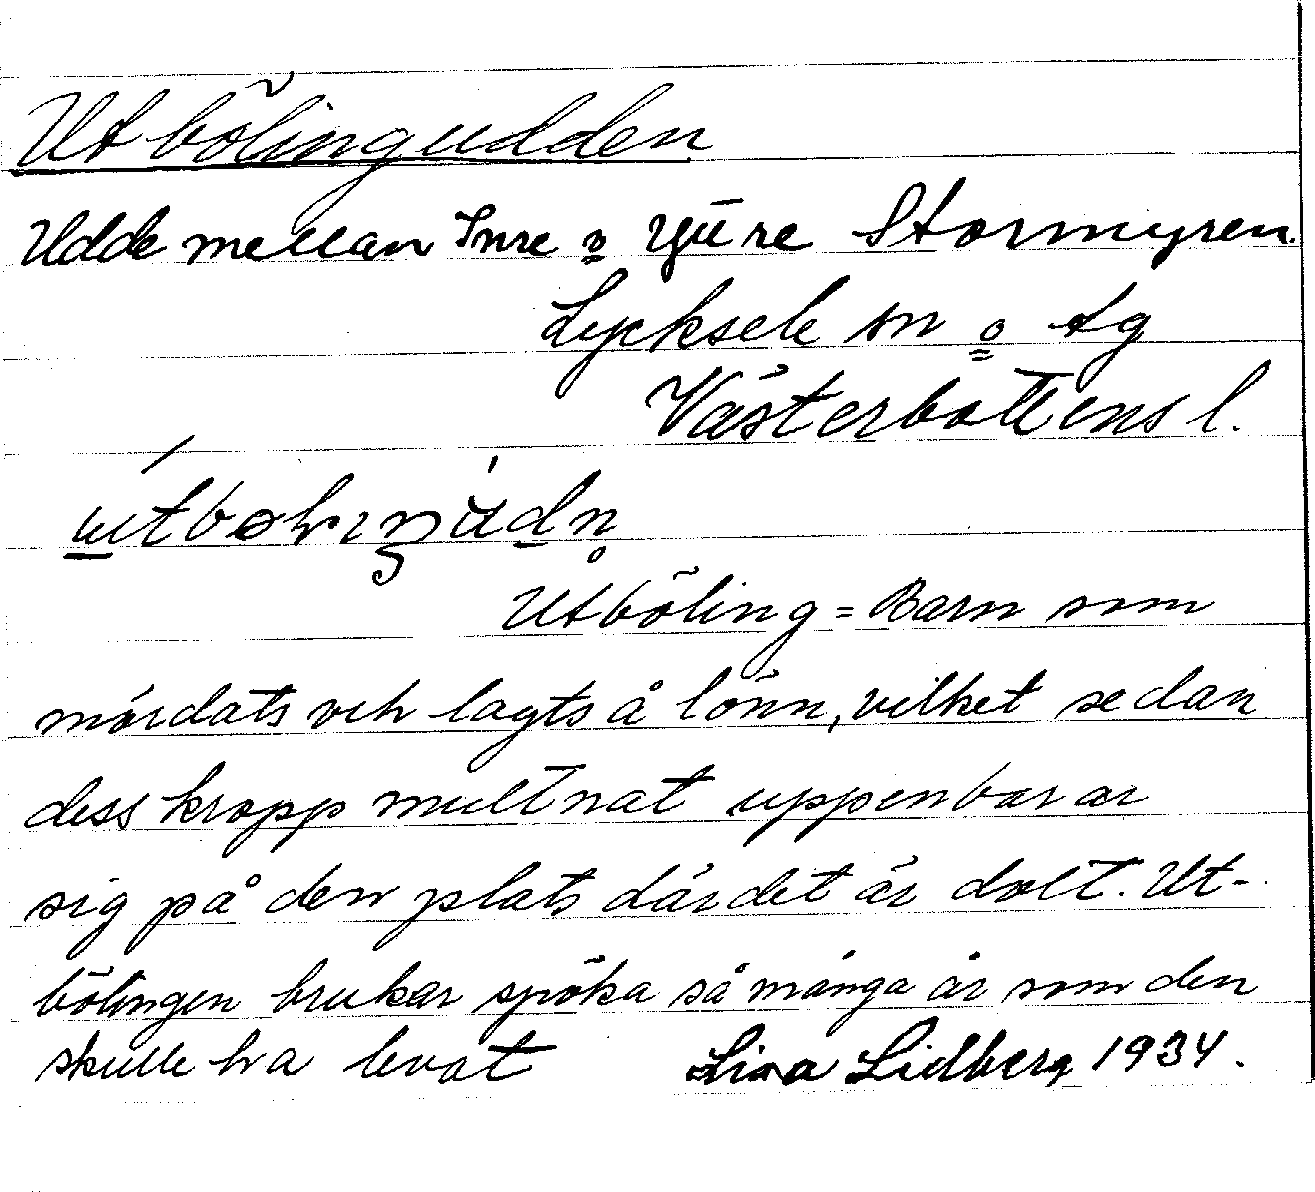 Utbölingudden
Udde mellan Inre o Yttre Stormyren.
Lycksele sn o tg
Västerbottens l.
Utböling = Barn som
mördats och lagts å lönn, vilket sedan
dess kropp multnat uppenbarar
sig på den plats där det är dolt. Ut-
bölingen brukar spöka så många år som den
skulle ha levat Lisa Lidberg 1934.